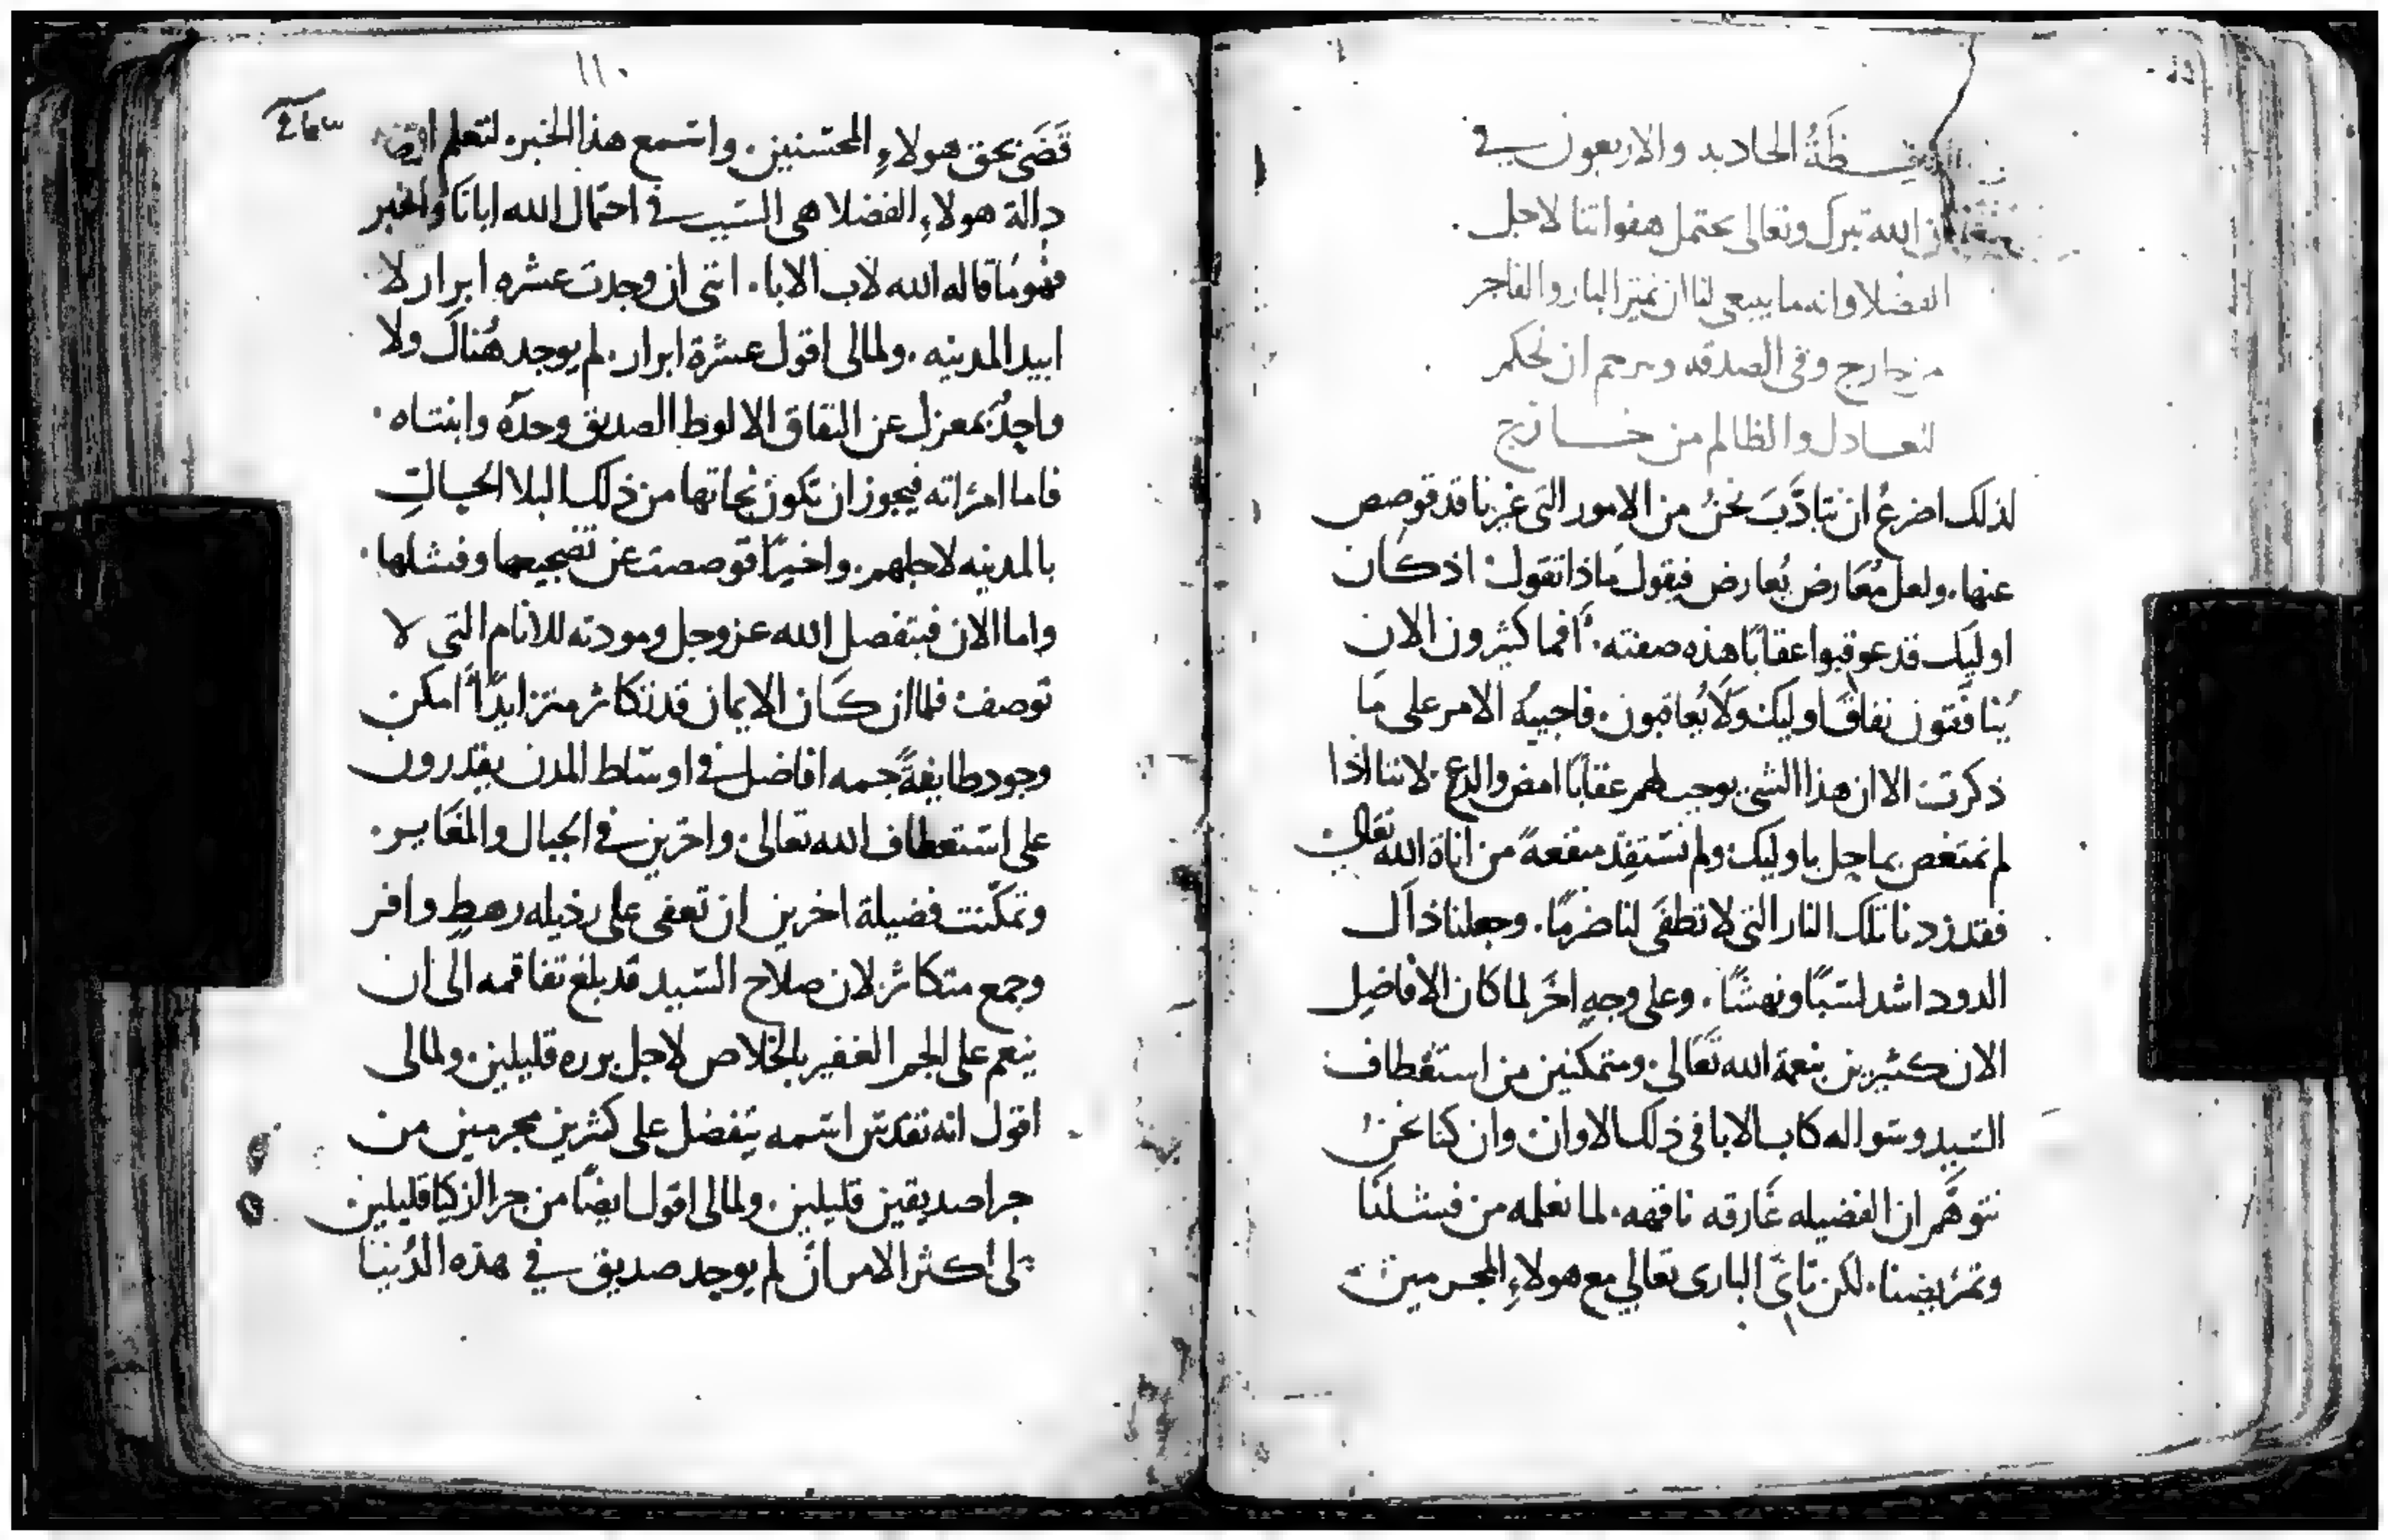 العظة الحاديه والاربعون في
ان الله تبرك وتعالى يحتمل هفواتنا لاجل
الفضلا وانه ما ينبغي لنا ان نميز البار والفاجر
من خارج وفي الصدقه ونرحم ان نحكم
للعادل والظالم من خارج
لذلك اضرعُ ان نتادَّبَ نحنُ من الامور التي غيرنا قد قوصص
عنها. ولعل مُعَارض يُعارض فيقول مَاذا تقول اذ كان
اوليك قد عوقبوا عقابًا هذه صفته. أفما كثيرون الان
يُنافقون نفاقَ اوليك وَلَا يُعاقبون. فاجيبهُ الامر على مَا
ذكرت الا ان هذا الشي يوجب لهم عقابًا امض والذع. لاننا اذا
لم نمتغص بما حل باوليك ولم نستفِد منفعةً من اناة الله تعَالى
فقد زدنا تلك النار التي لا تطفَى لنا ضرمًا. وجعلنا ذاك
الدود اشد لسبًا ونهشًا. وعلى وجهٍ اخَر لما كان الافاضِل
الان كثيرين بنعمة الله تعَالى. ومتمكنين من استعطاف
السيد وسواله كاب الابا في ذلك الاوان وان كنا نحنُ
نتوهَّم ان الفضيله غَارقه نافهه. لما نعلمه من فشلنَا
وتمرّيضنا. لكن تانّي الباري تعالي مع هولاءِ المجرمين
١١٠
قَضَى بحق هولاءِ المحسنين. واسمع هذا الخبر. لتعلم
دالة هولاءِ الفضلا هي السبب في احتمال الله ابانا والخبر
فهو مَا قاله الله لاب الابا. انني ان وجدت عشره ابرار لا
ابيد المدينه. ولمالى اقول عشرة ابرار. لم يوجد هُناك ولا
واحِدٌ بمعزل عن النفاق الا لوط الصديق وحدَه وابنتاه.
فاما امرَاته فيجوز ان تكون نجاتها من ذلك البلا الحالِّ
بالمدينه لاجلهم. واخيرًا قوصصت عن تضجيعها وفشلها.
واما الان فبتفضل الله عز وجل ومودته للانام التي لا
توصف فلما ان كَان الايمان قد تكاثر متزايدًا امكن
وجود طايفةً جمه افاضل في اوسَاط المدن يقدرون
على استعطاف الله تعالى. واخرين في الجبال والمغَاير.
وتمكّنت فضيلة اخرين ان تعفى على رذيله رهطٍ وافر
وجمع متكاثر. لان صلاح السَيد قد بلغ تفاقمه الى ان
ينعم على الجم الغفير بالخلاص لاجل برره قليلين. ولمالى
اقول انه تقدّس اسمه يتفضل على كثرين مجرمين من
جرا صديقين قليلين. ولمالى اقول ايضًا من جرا ازكيا قليلين
على اكثر الامر ان لم يوجد صديق في هذه الدُنيا